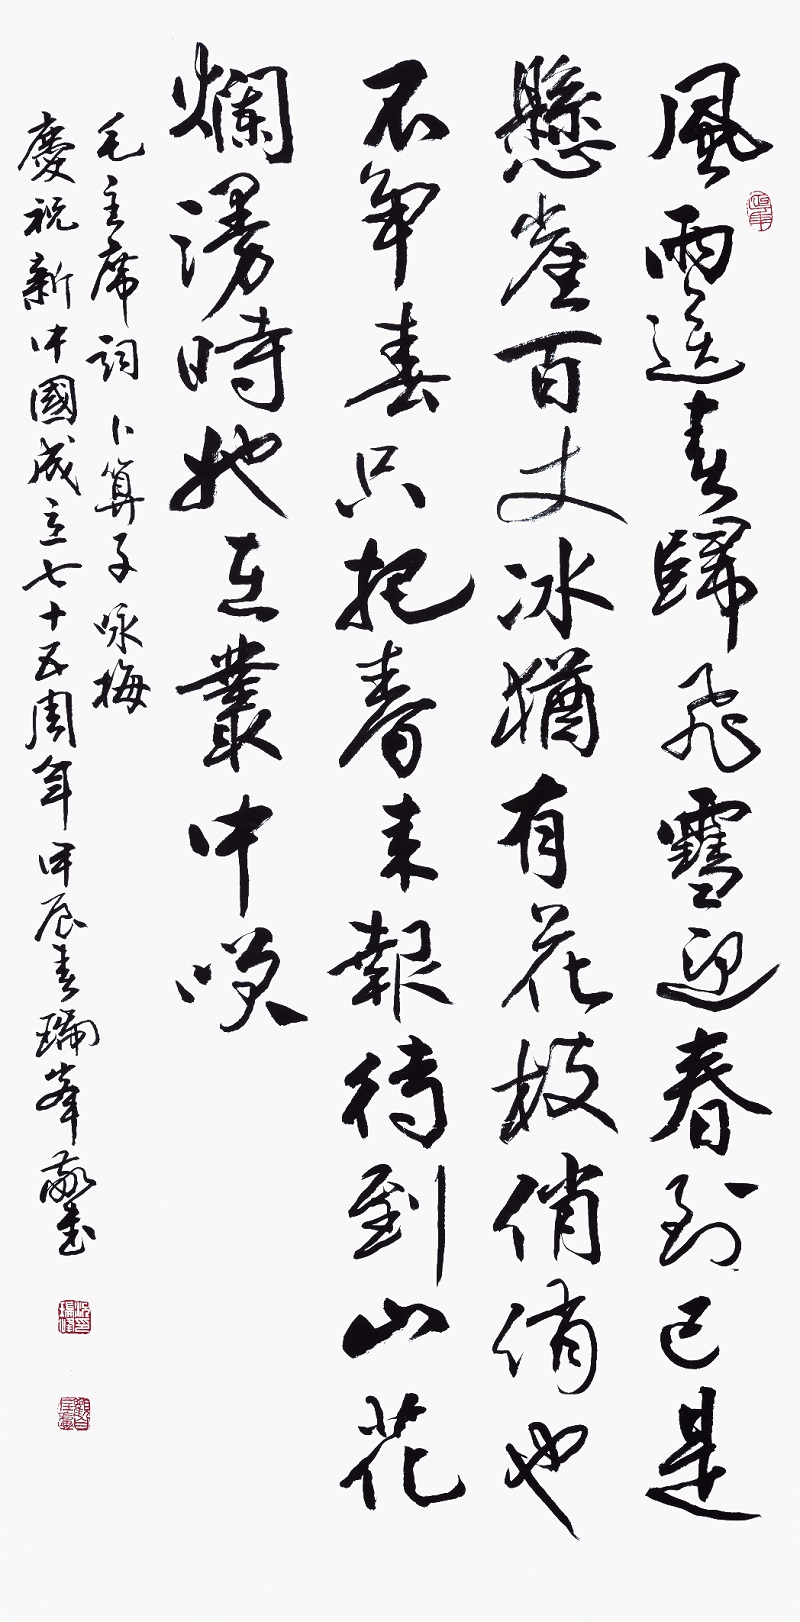 風雨送春歸飛雪迎春到已是
懸崖百丈冰猶有花枝俏俏也
不爭春只把春来報待到山花
爛漫時她在叢中咲
毛主席詞卜算子咏梅
慶祝新中國成立七十五周年甲辰春瑞峯敬書